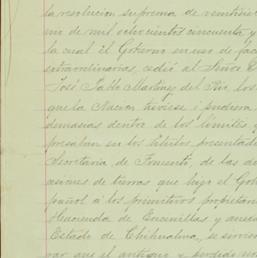 la resolucion suprema de veintiseis
nio de mil ochocientos cincuenta y
la cual el Gobierno en uso de fac
extraordinarias, cedió al Señor D
José Pablo Martinez del Rio, los
que la Nacion tuviese ó pudiera
demasias dentro de los límites
presaban en los títulos presentado
Secretaría de Fomento, de las de
aciones de tierras que hizo el Gob
pañol á los primitivos propietario
Hacienda de Encinillas y anexas
Estado de Chihuahua, se sirvio
rar que el antiguo y perdido